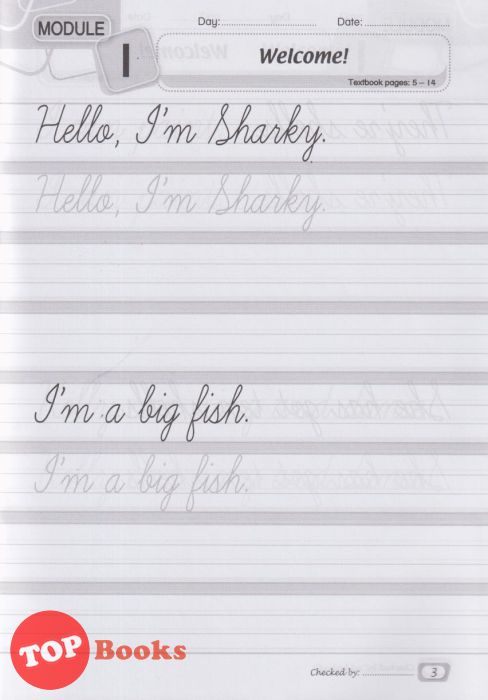 MODULE
Day:
Date:
1
Welcome!
Textbook pages: 5 – 14
Hello, I'm Sharky.
Hello, I'm Sharky.
I'm a big fish.
I'm a big fish.
TOP Books
Checked by:
3